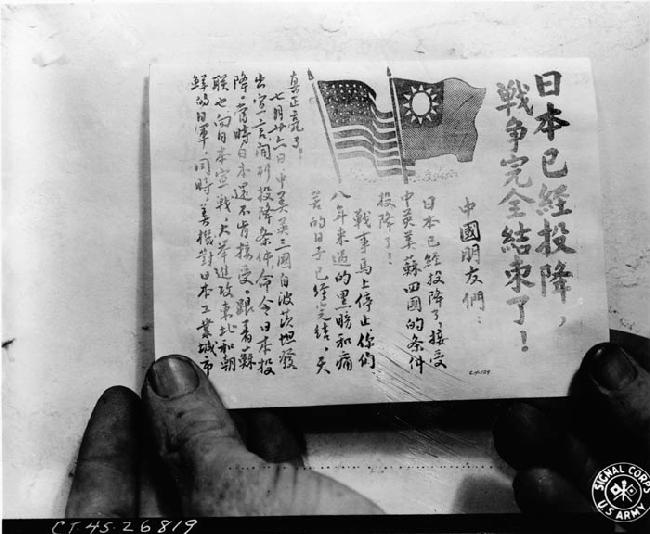 日本已経投降，
戰争完全結束了！
中國朋友們：
日本已経投降了，接受
中英美蘇四國的条件
投降了！
戰事馬上停止，你們
八年来過的黑暗和痛
苦的日子已経完結，天
真正亮了！
七月廿六日，中美英三國自波茨坦發
出宣言，開列投降条件，命令日本投
降。當時日本還不肯接受。跟着蘇
聯也向日本宣戰，大举進攻東北和朝
鮮的日軍，同時，美機對日本工業城市
CT-45-26819
SIGNAL CORPS
U.S. ARMY